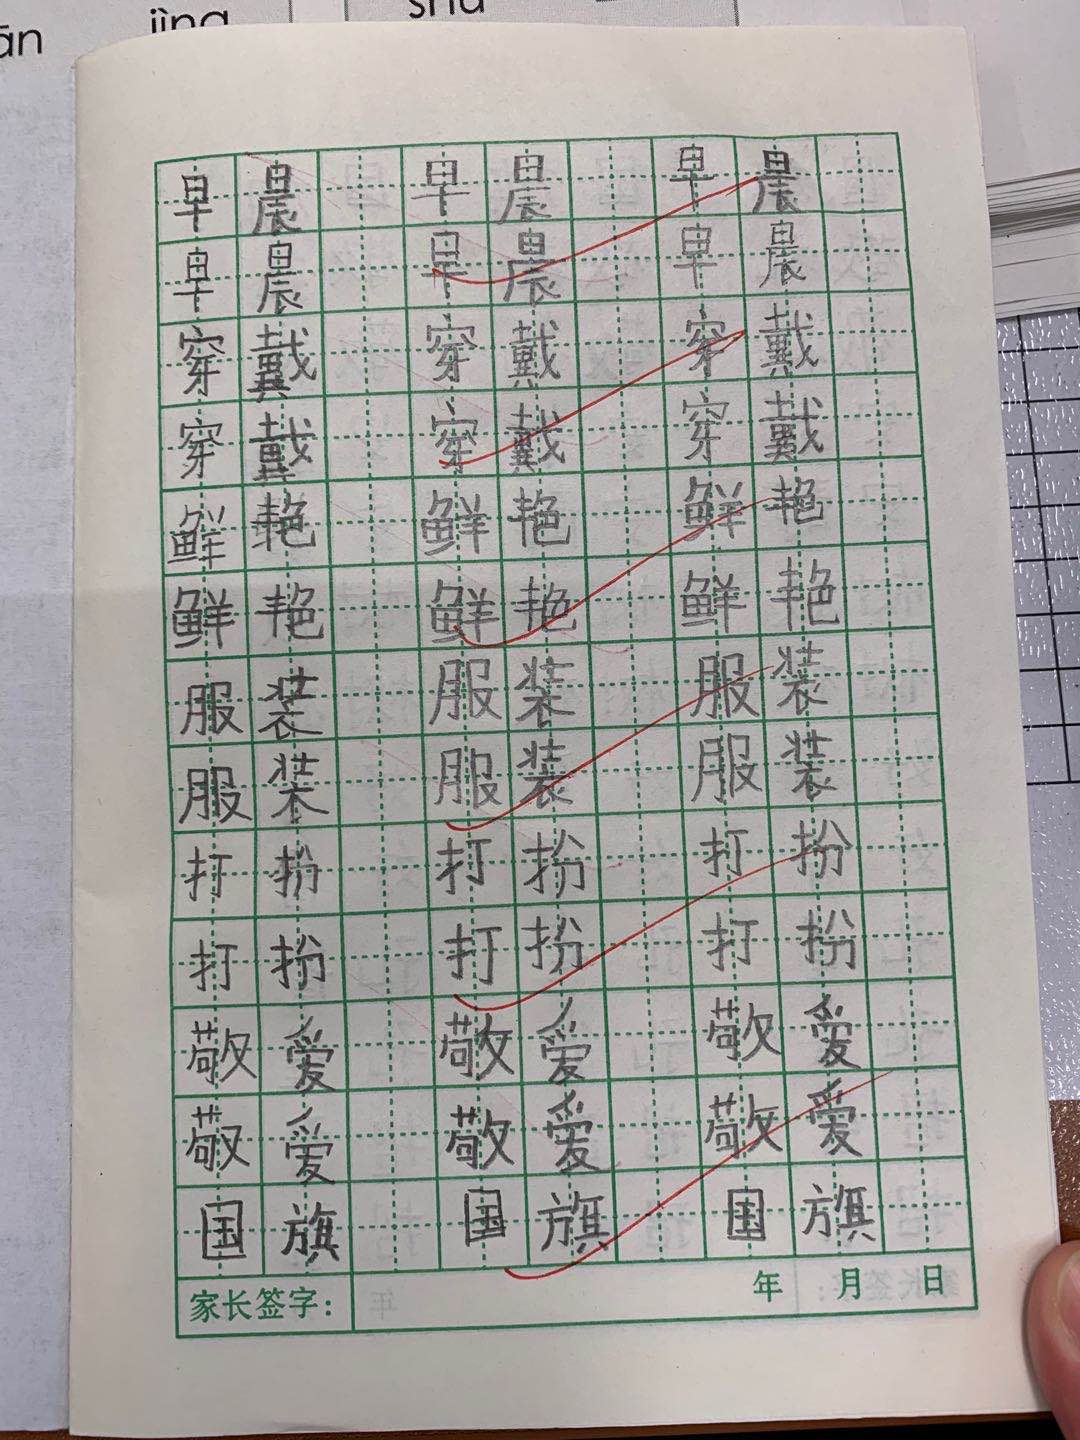 ān jìng shū
早晨 早晨 早晨
早晨 早晨 早晨
穿戴 穿戴 穿戴
穿戴 穿戴 穿戴
鲜艳 鲜艳 鲜艳
鲜艳 鲜艳 鲜艳
服装 服装 服装
服装 服装 服装
打扮 打扮 打扮
打扮 打扮 打扮
敬爱 敬爱 敬爱
敬爱 敬爱 敬爱
国旗 国旗 国旗
家长签字： 年 月 日